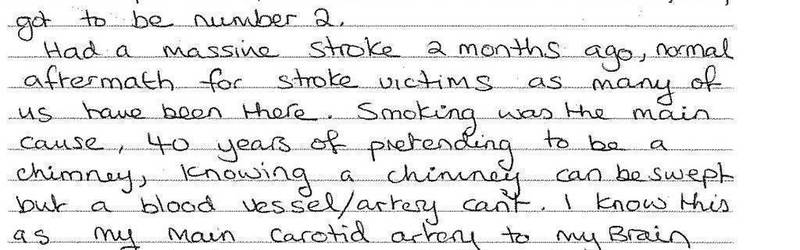 got to be number 2.
Had a massive stroke 2 months ago, normal
aftermath for stroke victims as many of
us have been there. Smoking was the main
cause, 40 years of pretending to be a
chimney, knowing a chimney can be swept
but a blood vessel/artery can't. I know this
as my main carotid artery to my Brain